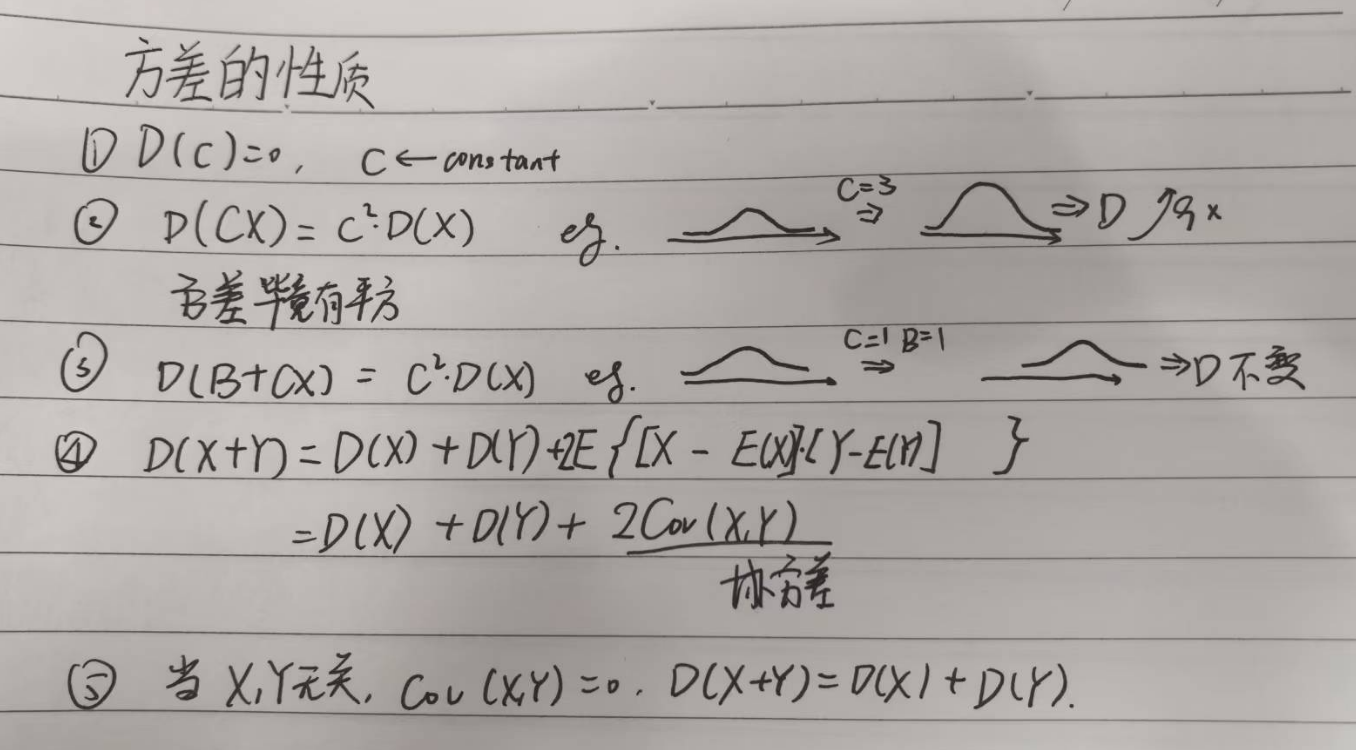 方差的性质
① D(C)=0, C ← constant
② D(CX) = C²·D(X) eg. C=3 ⇒ ⇒ D ↗9x
方差毕竟有平方
③ D(B+CX) = C²·D(X) eg. C=1 B=1 ⇒ ⇒ D 不变
④ D(X+Y) = D(X) + D(Y) + 2E{[X - E(X)]·[Y-E(Y)] }
= D(X) + D(Y) + 2Cov(X,Y)
协方差
⑤ 当 X,Y无关, Cov (X,Y) =0. D(X+Y) = D(X) + D(Y).